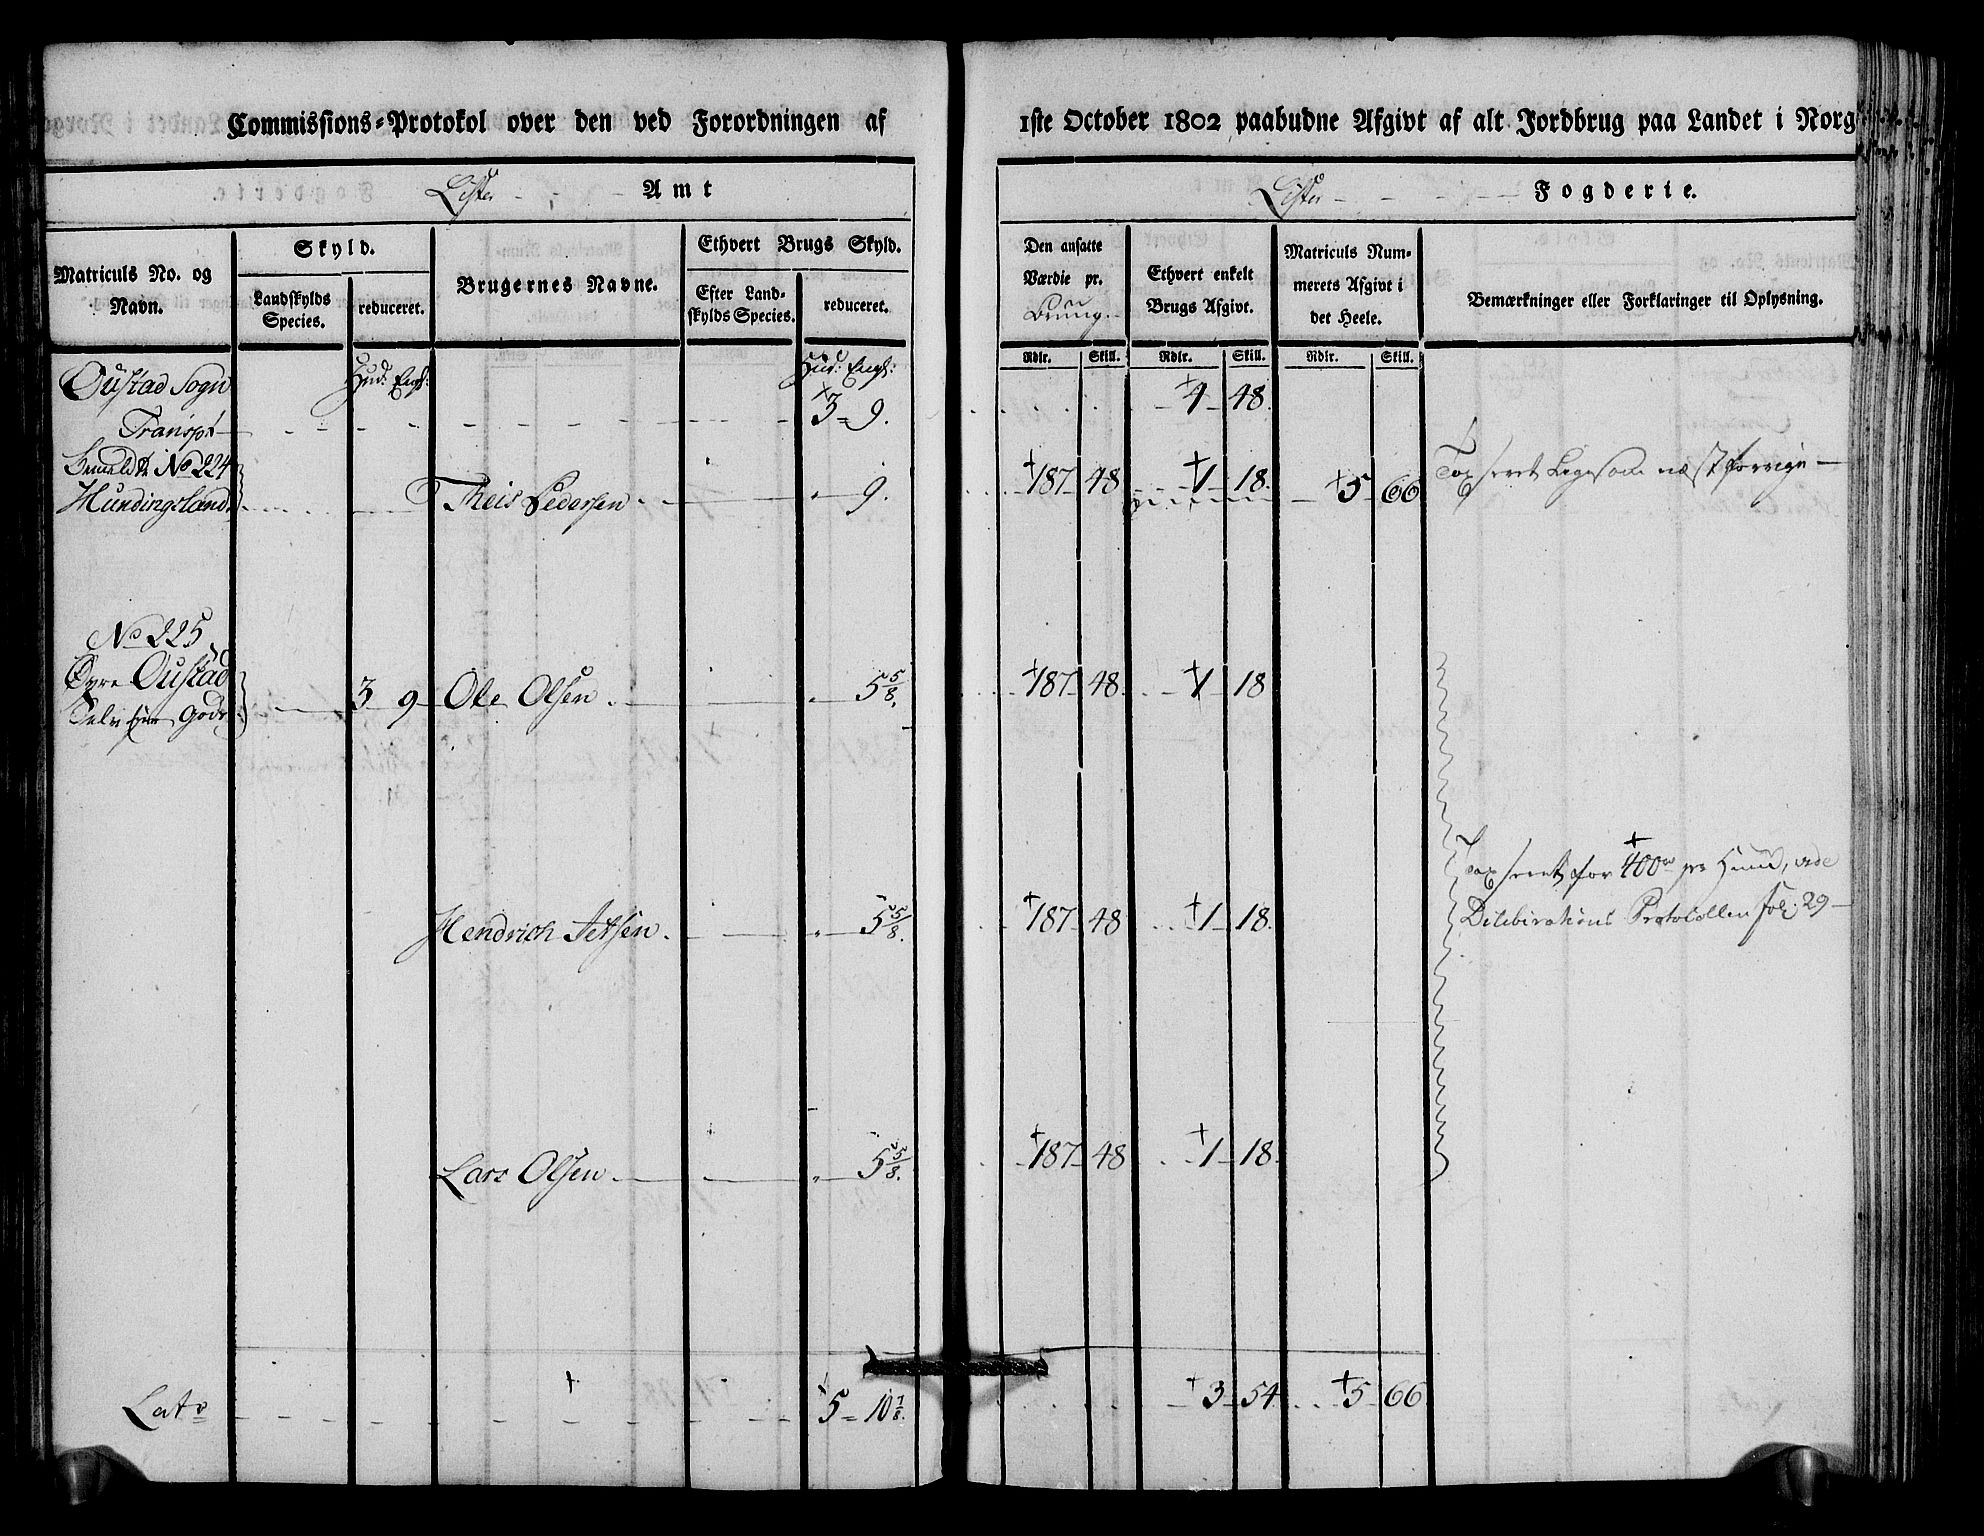 Commissions-Protokol over den ved Forordningen af 1ste October 1802 paabudne Afgivt af alt Jordbrug paa Landet i Norg
Lister Amt
Lister Fogderie.
Matriculs No. og Navn.
Skyld.
Landskylds Species.
reduceret.
Brugernes Navne.
Ethvert Brugs Skyld.
Efter Landskylds Species.
reduceret.
Den ansatte Værdie pr. Brug.
Ethvert enkelt Brugs Afgivt.
Matriculs Nummerets Afgivt i det Heele.
Bemærkninger eller Forklaringer til Oplysning.
Rdlr. Skill. Rdlr. Skill. Rdlr. Skill.
Oustad Sogn Hud: Eng: Hud: Eng:
Transpt 3 = 9. 4 48.
Bemeldte No 224
Hundingsland Theis Pedersen 9. 187 48 1 18. 5 66 Taxseret Ligesom næst forrige
No 225
Øvre Oustad
Selv Gods 3 9 Ole Olsen 5 5/8. 187 48 1 18
Taxseret for 400 pr Huud, vide
Hendrich Jetsen. 5 5/8. 187 48 1 18. Delebirations Protocollen Fol: 29
Lars Olsen 5 5/8. 187 48 1 18.
Lats 5 = 10 7/8. 3 54 5 66